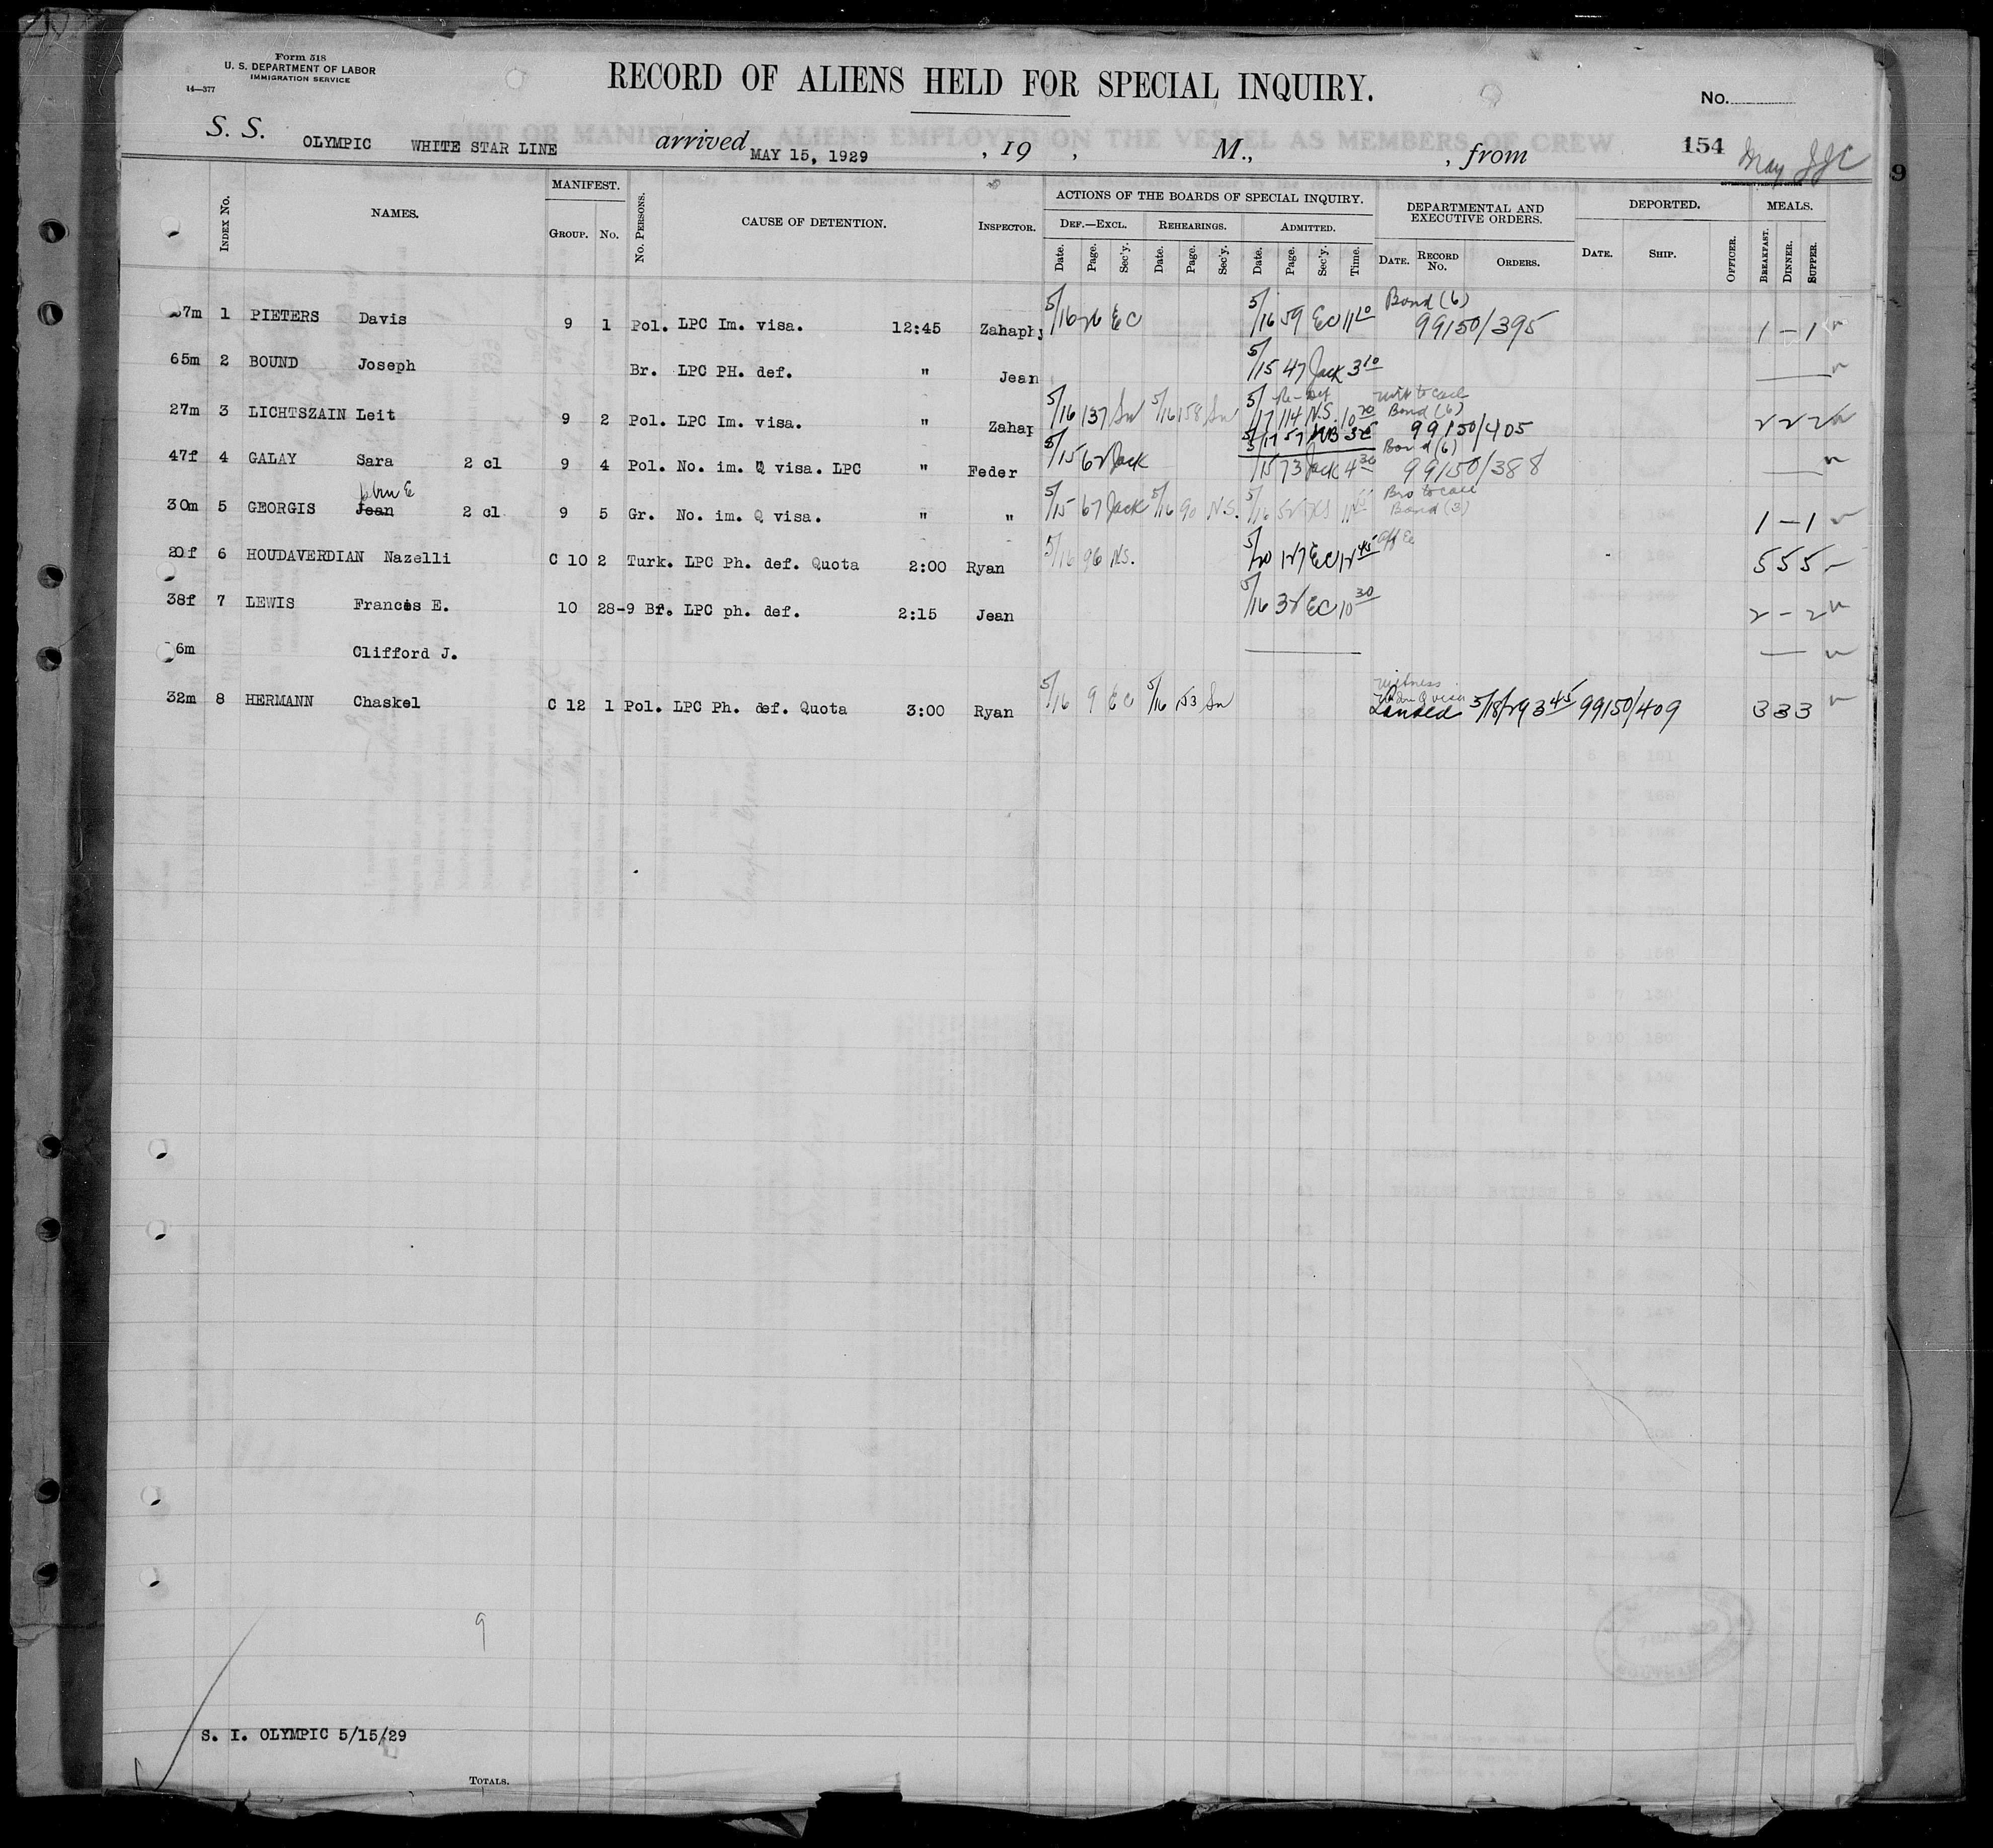 Form 518
U. S. DEPARTMENT OF LABOR
IMMIGRATION SERVICE
14—377
RECORD OF ALIENS HELD FOR SPECIAL INQUIRY.
No.
S. S. OLYMPIC WHITE STAR LINE arrived MAY 15, 1929 , 19 , M., , from 154 May
9
INDEX NO. NAMES. MANIFEST. GROUP. NO. NO. PERSONS. CAUSE OF DETENTION. INSPECTOR. ACTIONS OF THE BOARDS OF SPECIAL INQUIRY. DEPARTMENTAL AND EXECUTIVE ORDERS. DEPORTED. MEALS.
DEF.—EXCL. REHEARINGS. ADMITTED.
Date. Page. Sec'y. Date. Page. Sec'y. Date. Page. Sec'y. Time. DATE. RECORD NO. ORDERS. DATE. SHIP. OFFICER. BREAKFAST. DINNER. SUPPER.
7m 1 PIETERS Davis 9 1 Pol. LPC Im. visa. 12:45 Zahaphy 5/16 26 EC 5/16 59 EC 11 10 Bond (6) 99150/395 1 – 1
65m 2 BOUND Joseph Br. LPC PH. def. " Jean 5/15 47 Jack 3 10
27m 3 LICHTSZAIN Leit 9 2 Pol. LPC Im. visa. " Zahap 5/16 137 Sn 5/16 158 Sn 5/17 114 N.S. 10 Bond (6) 99150/405 2 2 2
5/17 57
47f 4 GALAY Sara 2 cl 9 4 Pol. No. im. Q visa. LPC " Feder 5/15 62 Jack 5/15 73 Jack 4 30 Bond (6) 99150/388
John E
30m 5 GEORGIS Jean 2 cl 9 5 Gr. No. im. Q visa. " " 5/15 67 Jack 5/16 90 N.S. 5/16 Bro to call Bond (3) 1 – 1
20f 6 HOUDAVERDIAN Nazelli C 10 2 Turk. LPC Ph. def. Quota 2:00 Ryan 5/16 96 N.S. 5/20 127 EC 12 45 5 5 5
38f 7 LEWIS Frances E. 10 28-9 Br. LPC ph. def. 2:15 Jean 5/16 32 EC 10 30 2 – 2
6m Clifford J.
32m 8 HERMANN Chaskel C 12 1 Pol. LPC Ph. def. Quota 3:00 Ryan 5/16 9 EC 5/16 153 Sn witness Landed 5/18/29 3 45 99150/409 3 3 3
9
S. I. OLYMPIC 5/15/29
TOTALS.